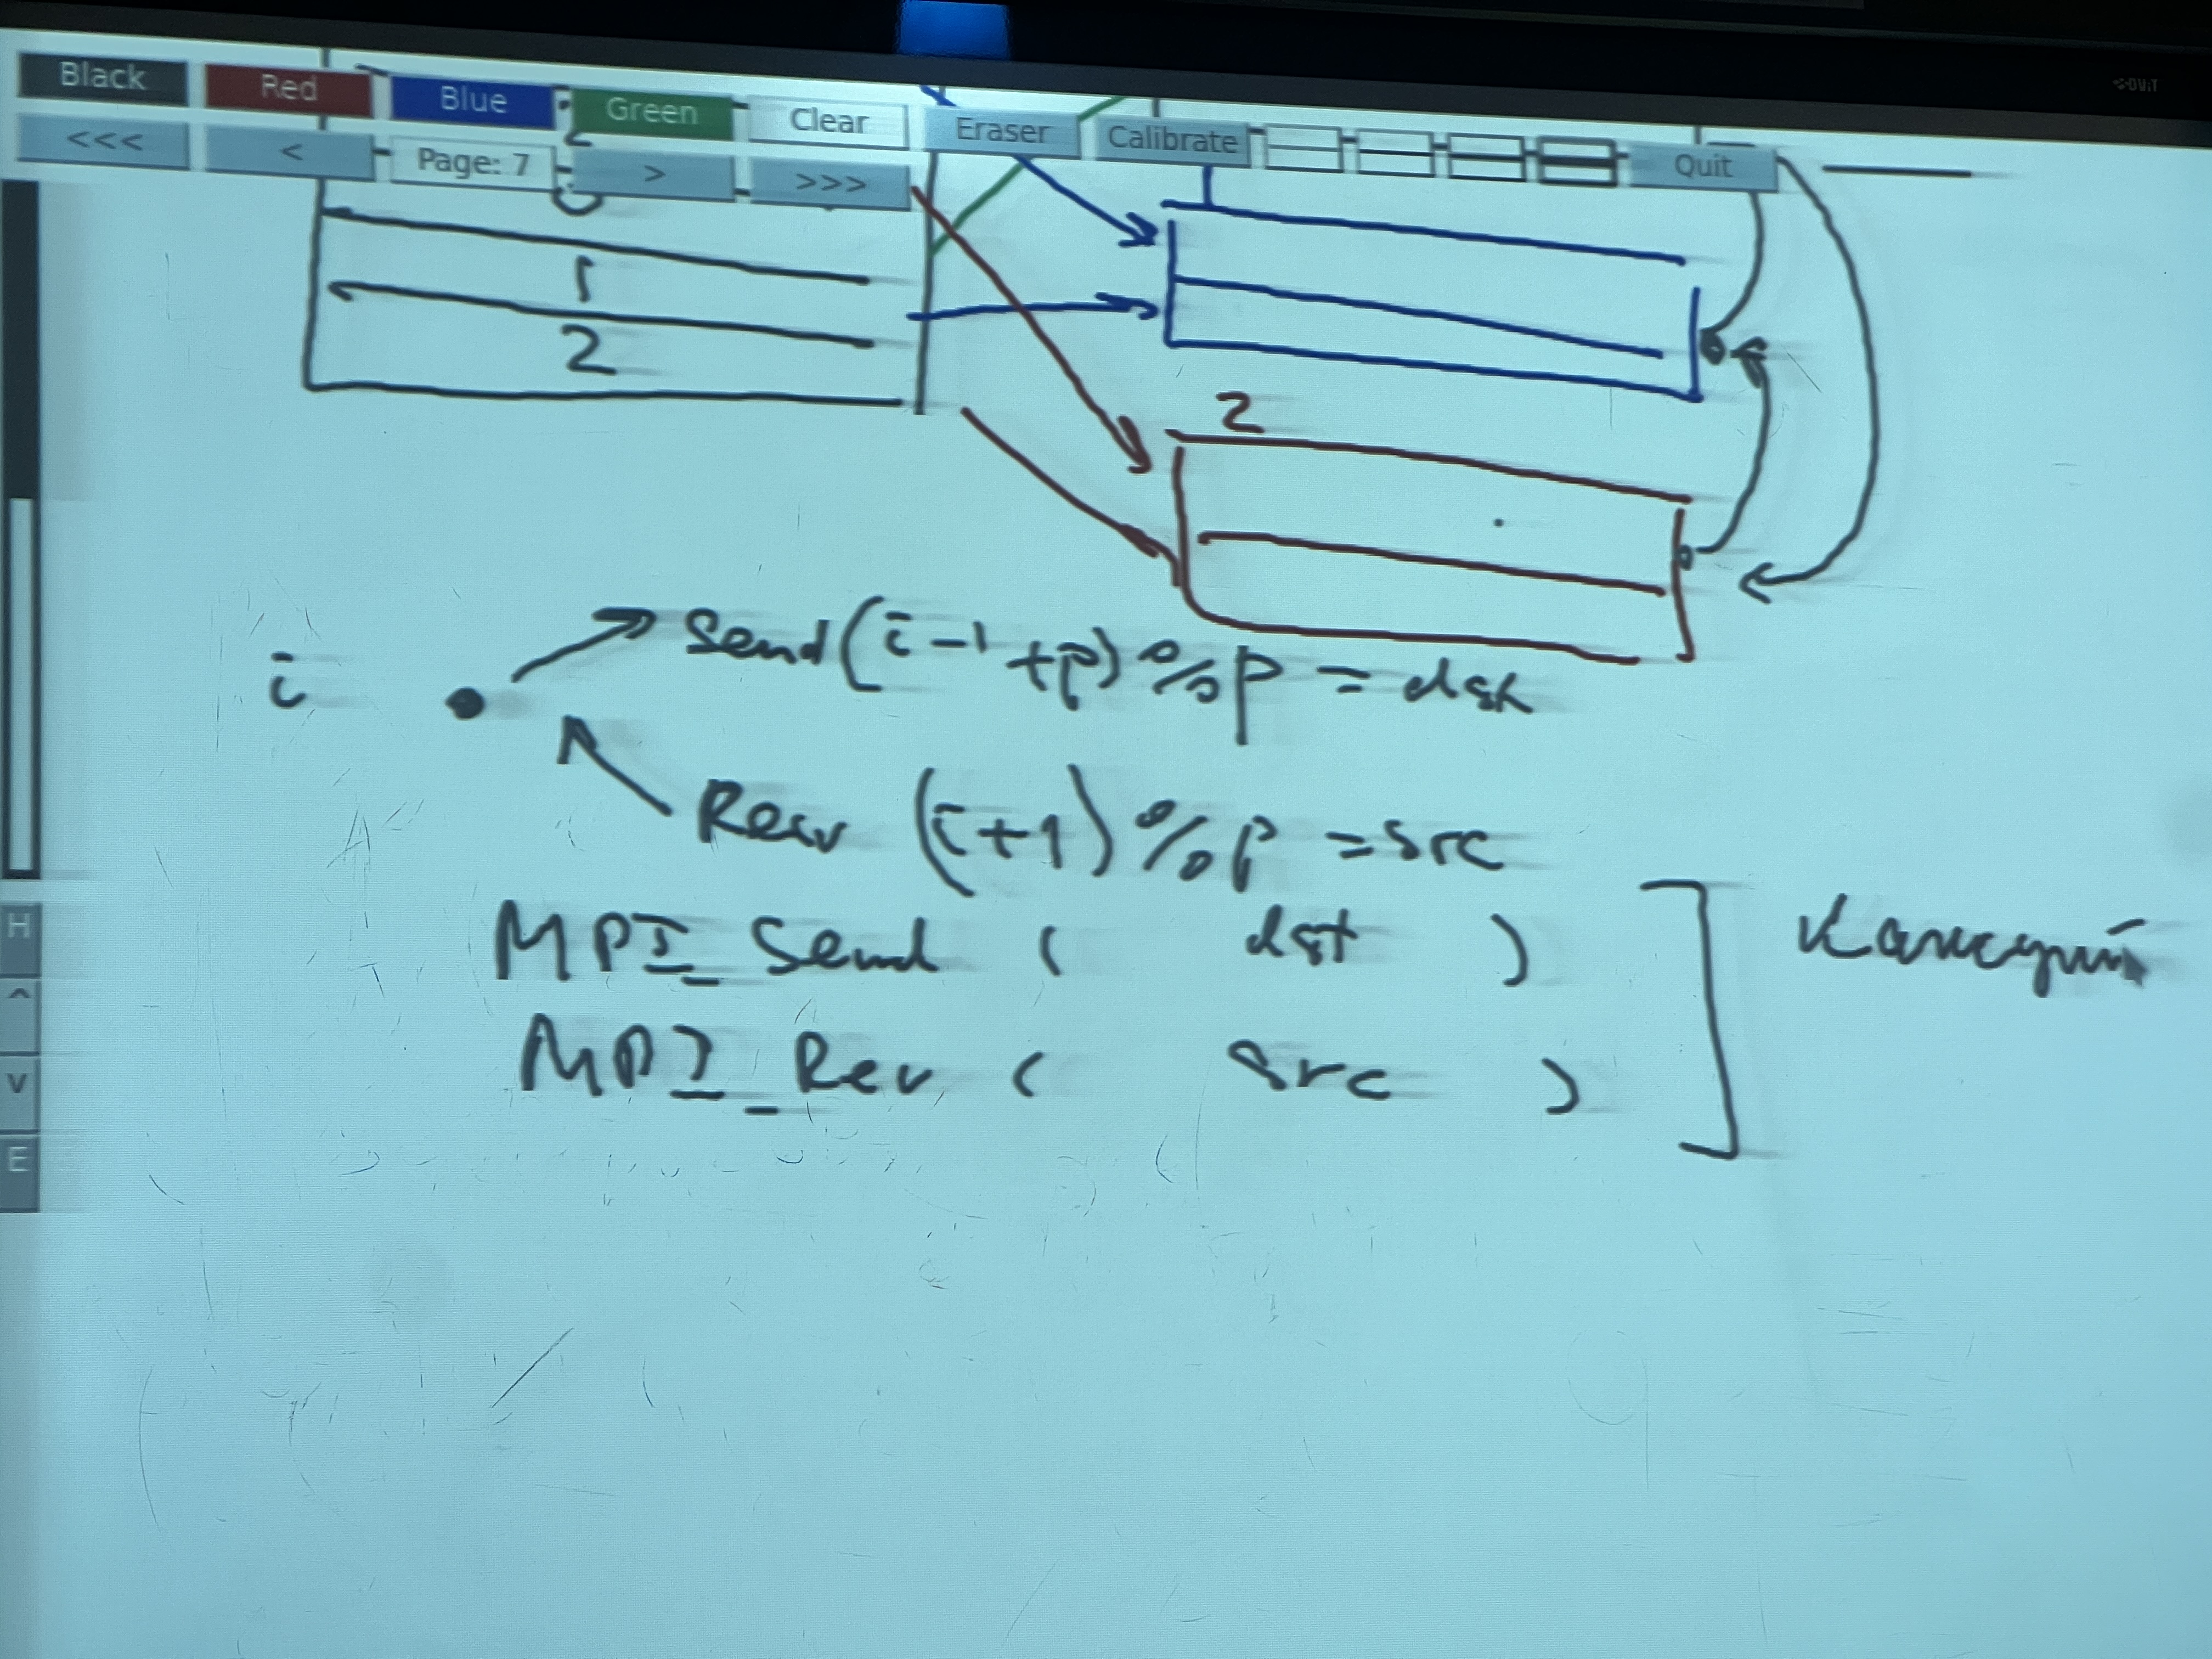 DViT
Black Red Blue Green Clear Eraser Calibrate Quit
<<< < Page: 7 > >>>
1
2
2
i
Send (i-1+p) % p = dst
Recv (i+1) % p = src
MPI_Send ( dst )
MPI_Rev ( src )
H
^
v
E